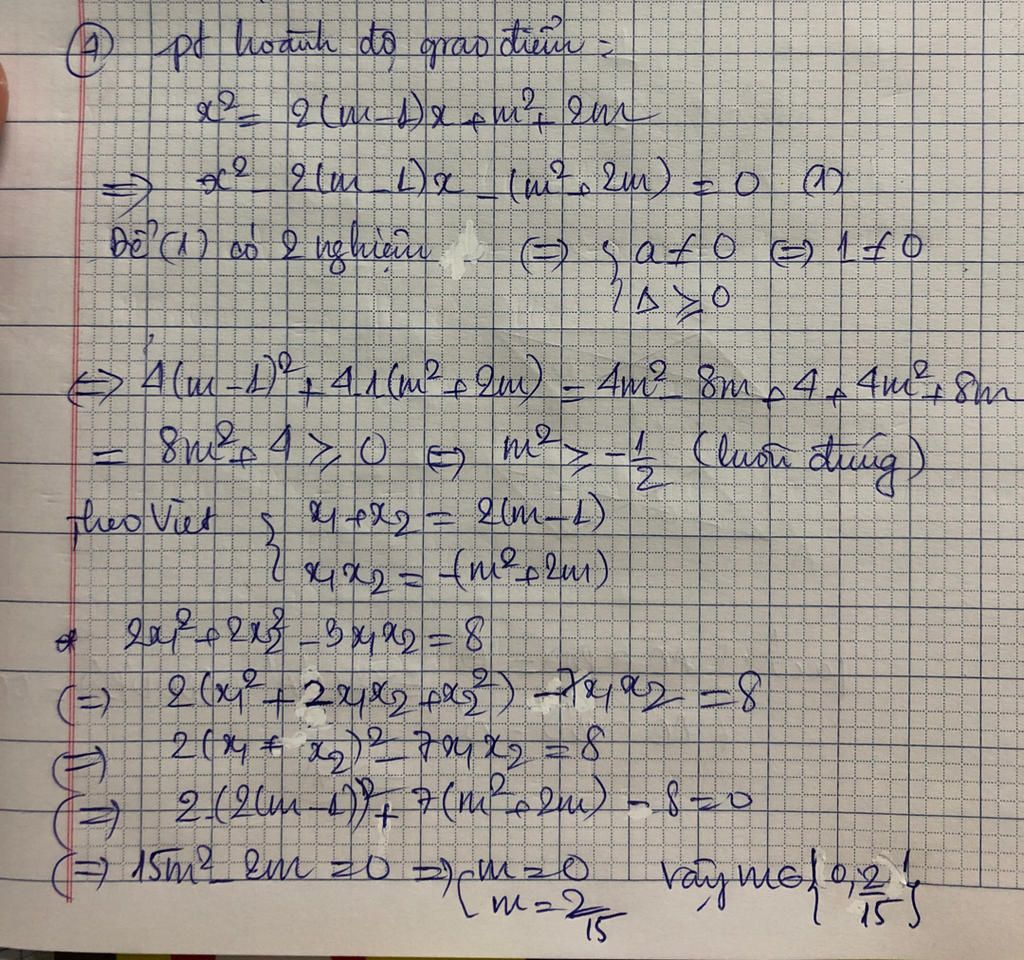 ① pt hoành độ giao điểm =
x² = 2(m-1)x + m² + 2m
=> x² - 2(m-1)x - (m² + 2m) = 0 (1)
Để (1) có 2 nghiệm <=> { a ≠ 0 <=> 1 ≠ 0
{ Δ ≥ 0
<=> 4(m-1)² + 4.1(m² + 2m) = 4m² - 8m + 4 + 4m² + 8m
= 8m² + 4 ≥ 0 <=> m² ≥ -1/2 (luôn đúng)
Theo Viet { x₁ + x₂ = 2(m-1)
{ x₁x₂ = -(m² + 2m)
* 2x₁² + 2x₂² - 3x₁x₂ = 8
<=> 2(x₁² + 2x₁x₂ + x₂²) - 7x₁x₂ = 8
<=> 2(x₁ + x₂)² - 7x₁x₂ = 8
<=> 2.(2(m-1))² + 7(m² + 2m) - 8 = 0
<=> 15m² - 2m = 0 => { m = 0 vậy m ∈ {0, 2/15}
{ m = 2/15